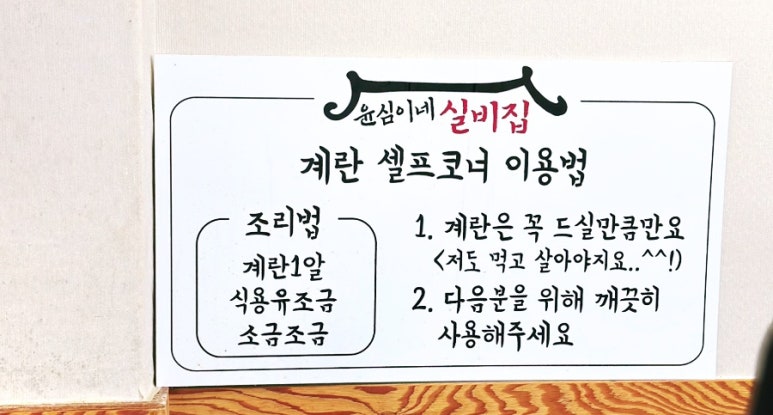 윤심이네 실비집
계란 셀프코너 이용법
조리법
계란1알
식용유조금
소금조금
1. 계란은 꼭 드실만큼만요
<저도 먹고 살아야지요..^^!)
2. 다음분을 위해 깨끗히
사용해주세요